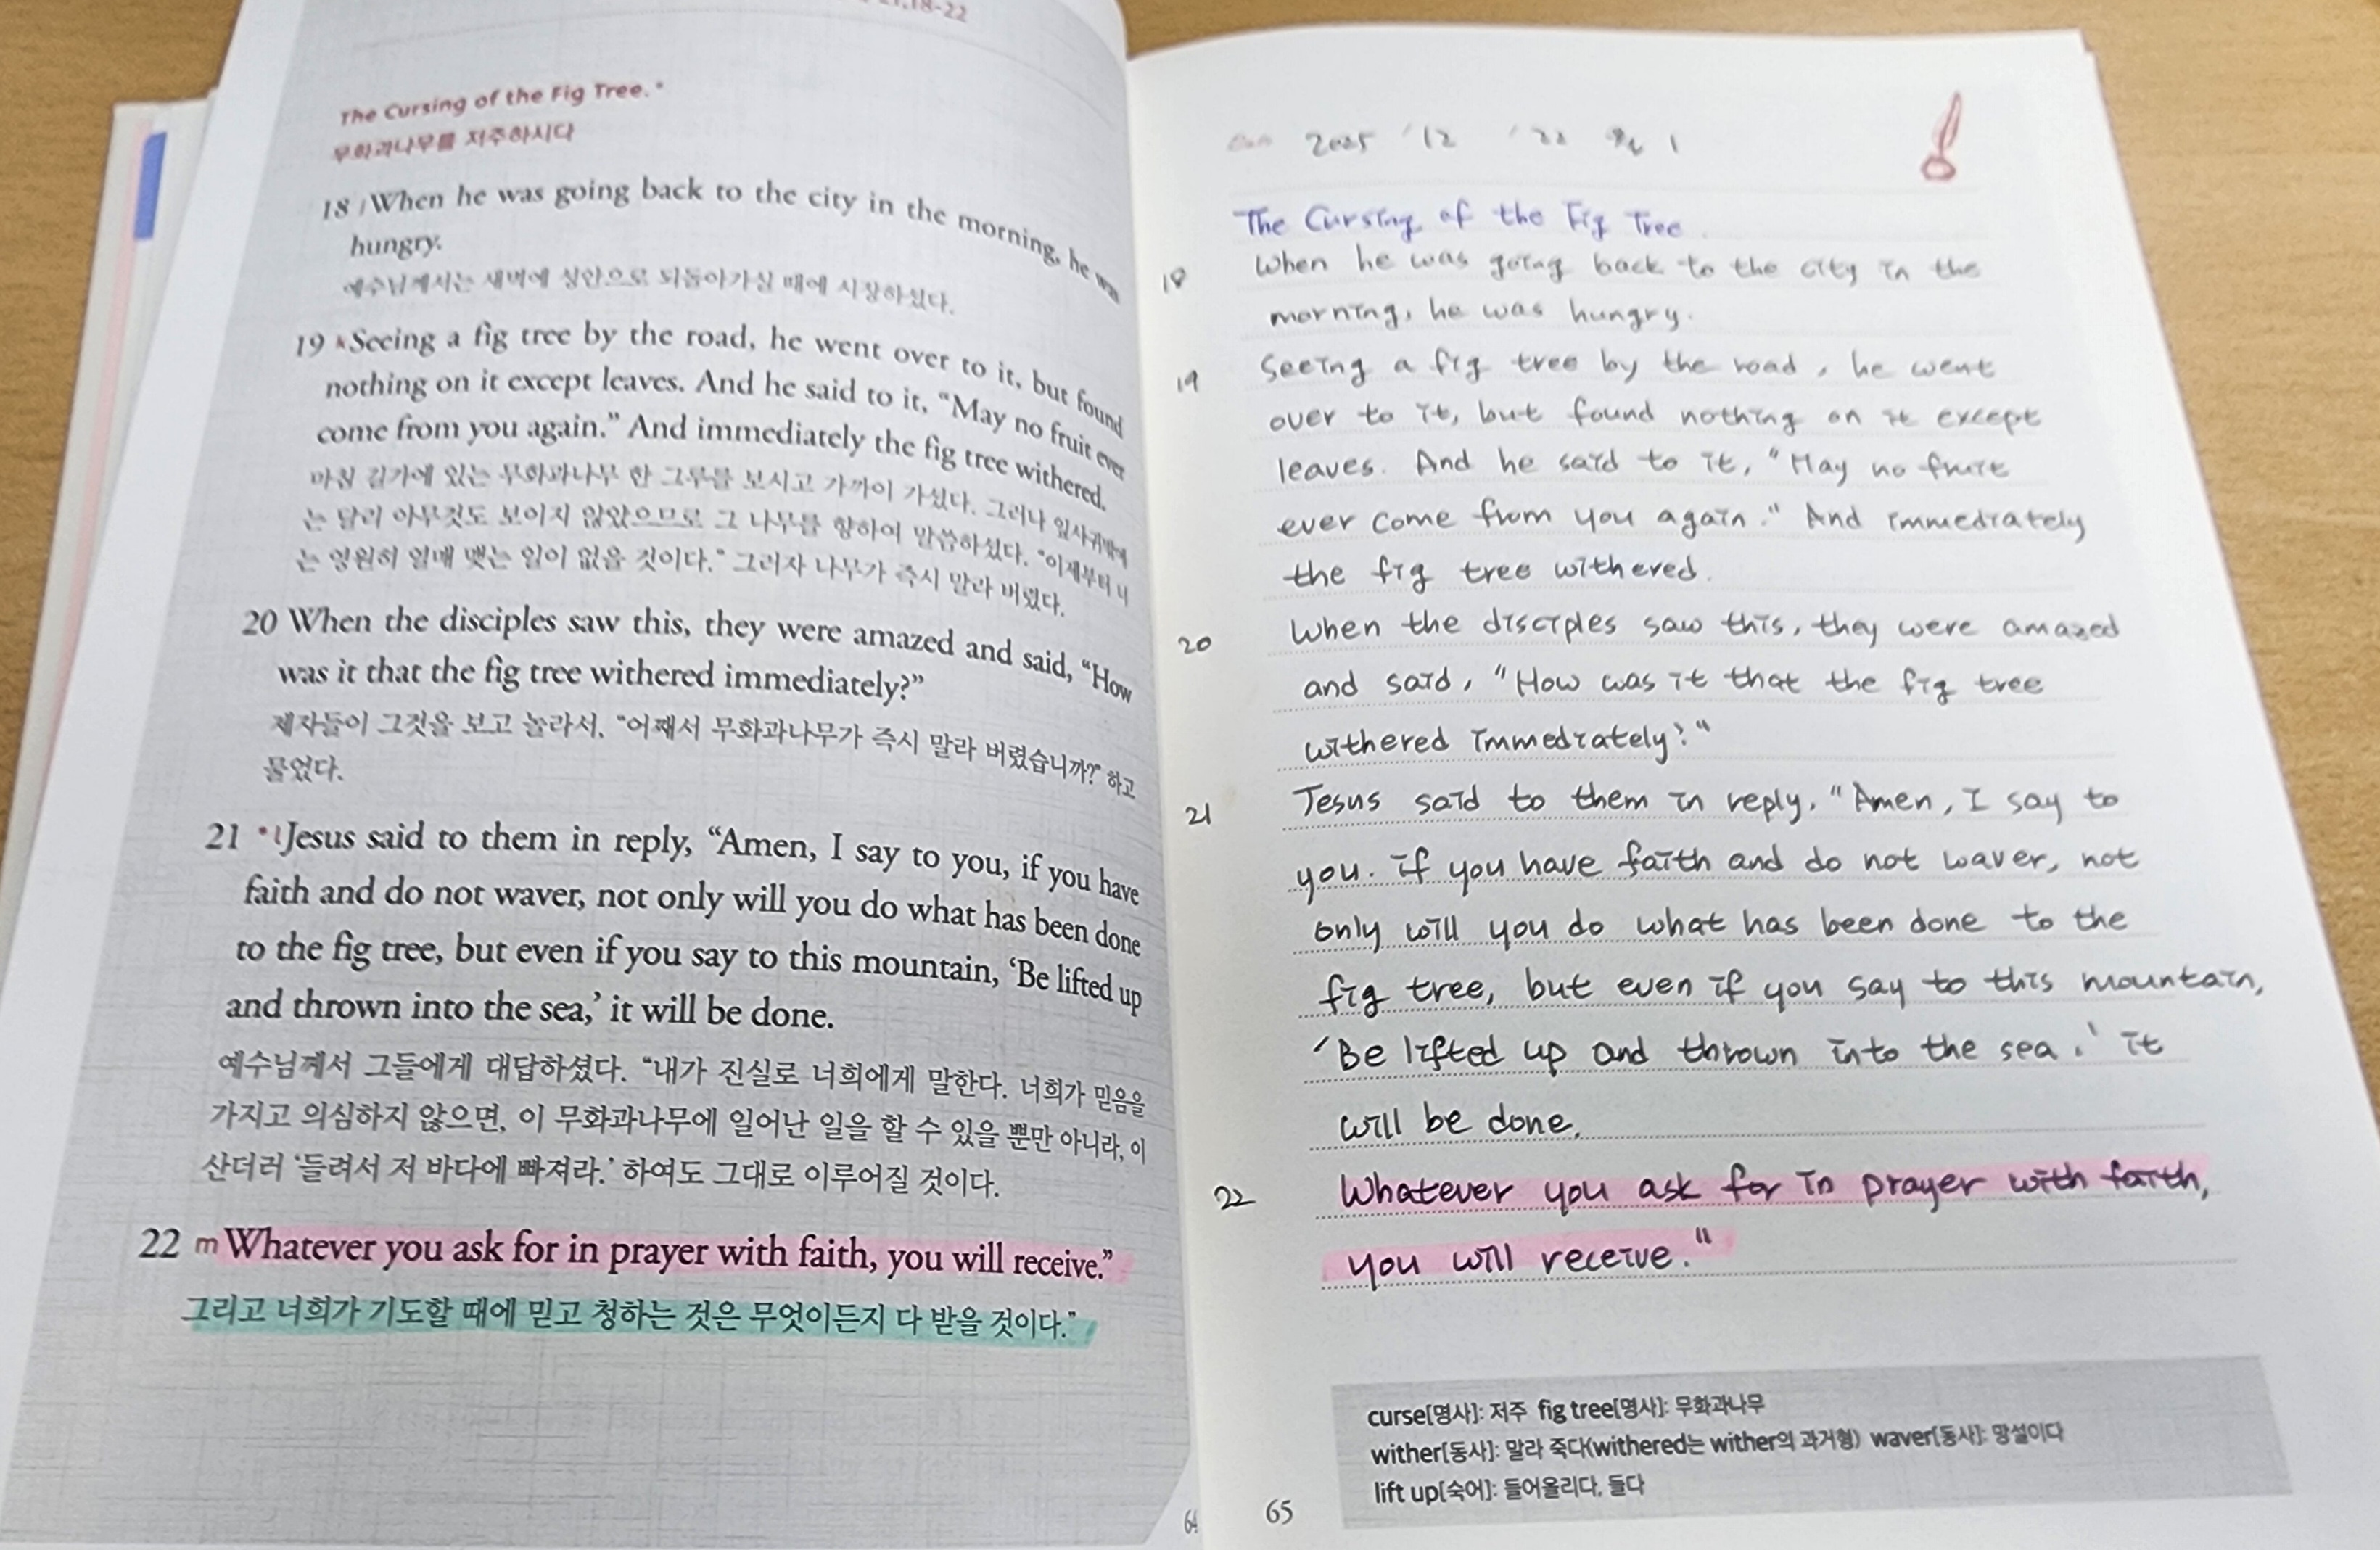 21,18-22
The Cursing of the Fig Tree.*
무화과나무를 저주하시다
18 j When he was going back to the city in the morning, he was
hungry.
예수님께서는 새벽에 성안으로 되돌아가실 때에 시장하셨다.
19 k Seeing a fig tree by the road, he went over to it, but found
nothing on it except leaves. And he said to it, “May no fruit ever
come from you again.” And immediately the fig tree withered.
마침 길가에 있는 무화과나무 한 그루를 보시고 가까이 가셨다. 그러나 잎사귀밖에
는 달리 아무것도 보이지 않았으므로 그 나무를 향하여 말씀하셨다. “이제부터 너
는 영원히 열매 맺는 일이 없을 것이다.” 그러자 나무가 즉시 말라 버렸다.
20 When the disciples saw this, they were amazed and said, “How
was it that the fig tree withered immediately?”
제자들이 그것을 보고 놀라서, “어째서 무화과나무가 즉시 말라 버렸습니까?” 하고
물었다.
21 * l Jesus said to them in reply, “Amen, I say to you, if you have
faith and do not waver, not only will you do what has been done
to the fig tree, but even if you say to this mountain, ‘Be lifted up
and thrown into the sea,’ it will be done.
예수님께서 그들에게 대답하셨다. “내가 진실로 너희에게 말한다. 너희가 믿음을
가지고 의심하지 않으면, 이 무화과나무에 일어난 일을 할 수 있을 뿐만 아니라, 이
산더러 ‘들려서 저 바다에 빠져라.’ 하여도 그대로 이루어질 것이다.
22 m Whatever you ask for in prayer with faith, you will receive.”
그리고 너희가 기도할 때에 믿고 청하는 것은 무엇이든지 다 받을 것이다.”
64
2025 '12 '22
The Cursing of the Fig Tree.
18 When he was going back to the city in the
morning, he was hungry.
19 Seeing a fig tree by the road, he went
over to it, but found nothing on it except
leaves. And he said to it, "May no fruit
ever come from you again." And immediately
the fig tree withered.
20 When the disciples saw this, they were amazed
and said, "How was it that the fig tree
withered immediately?"
21 Jesus said to them in reply, "Amen, I say to
you. if you have faith and do not waver, not
only will you do what has been done to the
fig tree, but even if you say to this mountain,
'Be lifted up and thrown into the sea,' it
will be done.
22 Whatever you ask for in prayer with faith,
you will receive."
curse[명사]: 저주 fig tree[명사]: 무화과나무
wither[동사]: 말라 죽다(withered는 wither의 과거형) waver[동사]: 망설이다
lift up[숙어]: 들어올리다, 들다
65